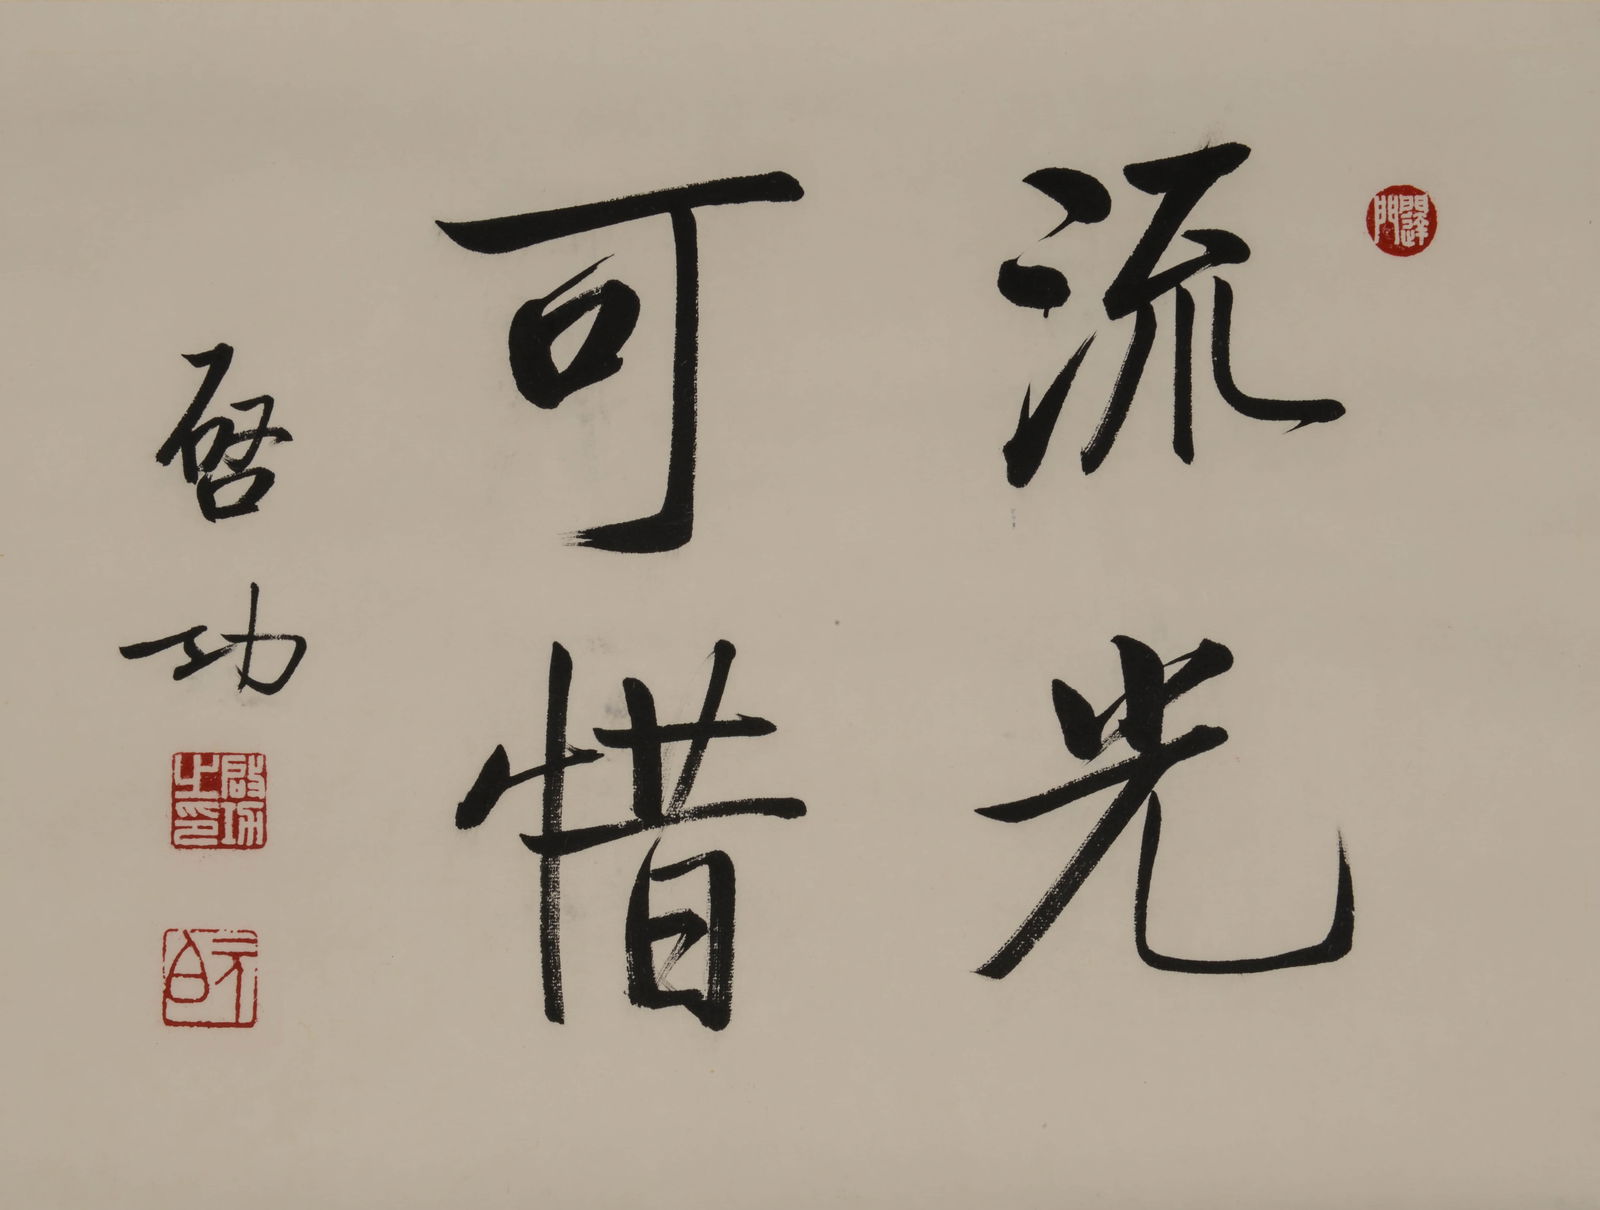 流光
可惜
啓功
啓功之印
元白